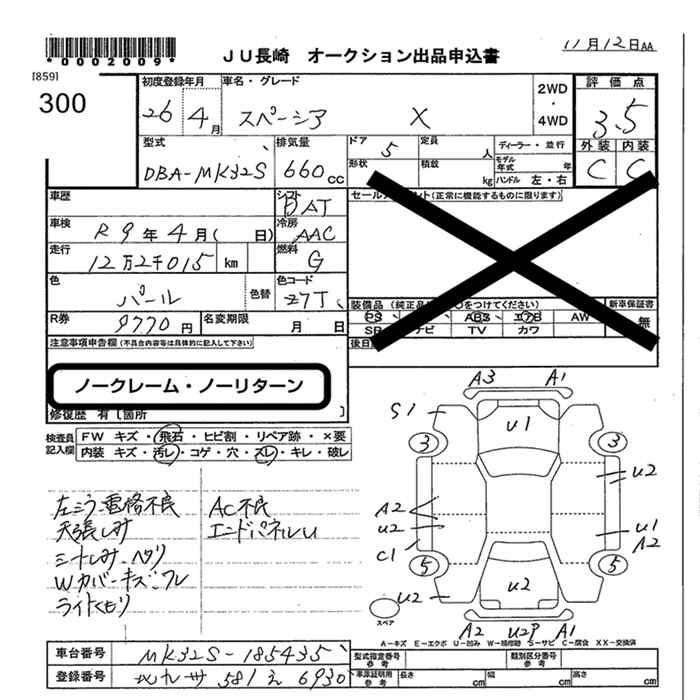 *0002009*
JU長崎 オークション出品申込書
11月12日AA
[859]
300
初度登録年月
26年4月
車名・グレード
スペーシア X
2WD・4WD
評価点
3.5
外装 内装
C C
型式
DBA-MK32S
排気量
660cc
ドア
5
定員
人
形状
積載
kg
ディーラー・並行
モデル年式 年
ハンドル 左・右
車歴
シフト
車検
R9年4月( 日)
冷房
AAC
走行
12万2千015 km
燃料
G
色
パール
色替
色コード
Z7T
R券
9770円
名変期限
月 日
(正常に機能するものに限ります)
装備品
をつけてください)
新車保証書
無
PS
ABS
エアB
AW
TV
カワ
注意事項申告欄(不具合内容等は具体的に記入して下さい)
ノークレーム・ノーリターン
修復歴 有〔箇所 〕
検査員記入欄
FW キズ・飛石・ヒビ割・リペア跡・×要
内装 キズ・汚レ・コゲ・穴・スレ・キレ・破レ
左ミラー電格不良
天張しみ
シートしみ・ヘタリ
Wカバーキズ・スレ
ライトくもり
AC不良
エンドパネルU
A3 A1
S1
U1
3 3
U2
A2
U2
C1
U1
A2
5 5
U2
U2
A2 U2P A1
スペア
A-キズ E-エクボ U-凹み W-補修跡 S-サビ C-腐食 XX-交換済
車台番号
MK32S-185435
登録番号
北九州 581 え 6930
型式指定番号 参考
類別区分番号 参考
車庫証明用 参考
長さ cm
幅 cm
高さ cm